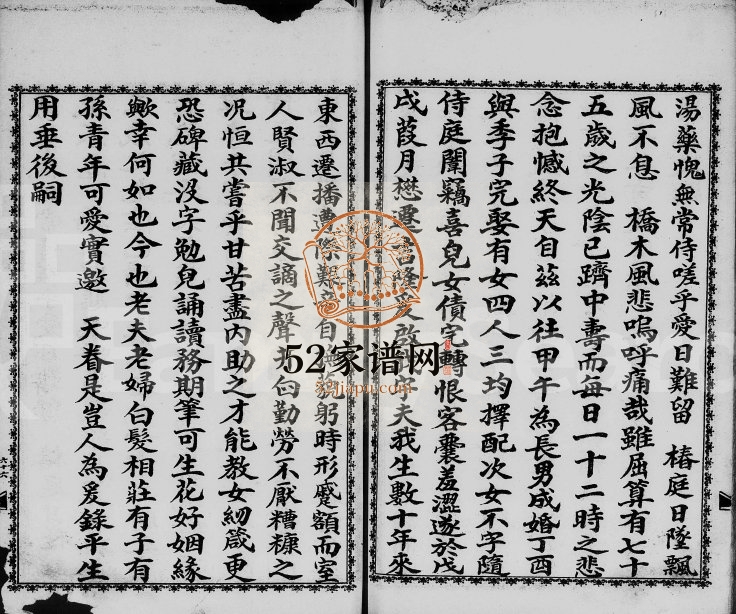 湯藥愧無常侍嗟乎愛日難留　椿庭日墜飄
風不息　橋木風悲嗚呼痛哉雖屈算有七十
五歲之光陰已躋中壽而每日一十二時之悲
念抱憾終天自茲以往甲午為長男成婚丁酉
與季子完娶有女四人三均擇配次女不字隨
侍庭闈竊喜兒女債完轉恨客囊羞澀遂於戊
戌葭月懋遷 隆 夫我生數十年來
東西遷播遭際艱 自 躬時形蹙額而室
人賢淑不聞交謫之聲 勤勞不厭糟糠之
况恒共嘗乎甘苦盡內助之才能教女紉箴更
恐碑藏沒字勉兒誦讀務期筆可生花好姻緣
歟幸何如也今也老夫老婦白髮相莊有子有
孫青年可愛實邀　天眷是豈人為爰錄平生
用垂後嗣
六十六
52家谱网
52jiapu.com